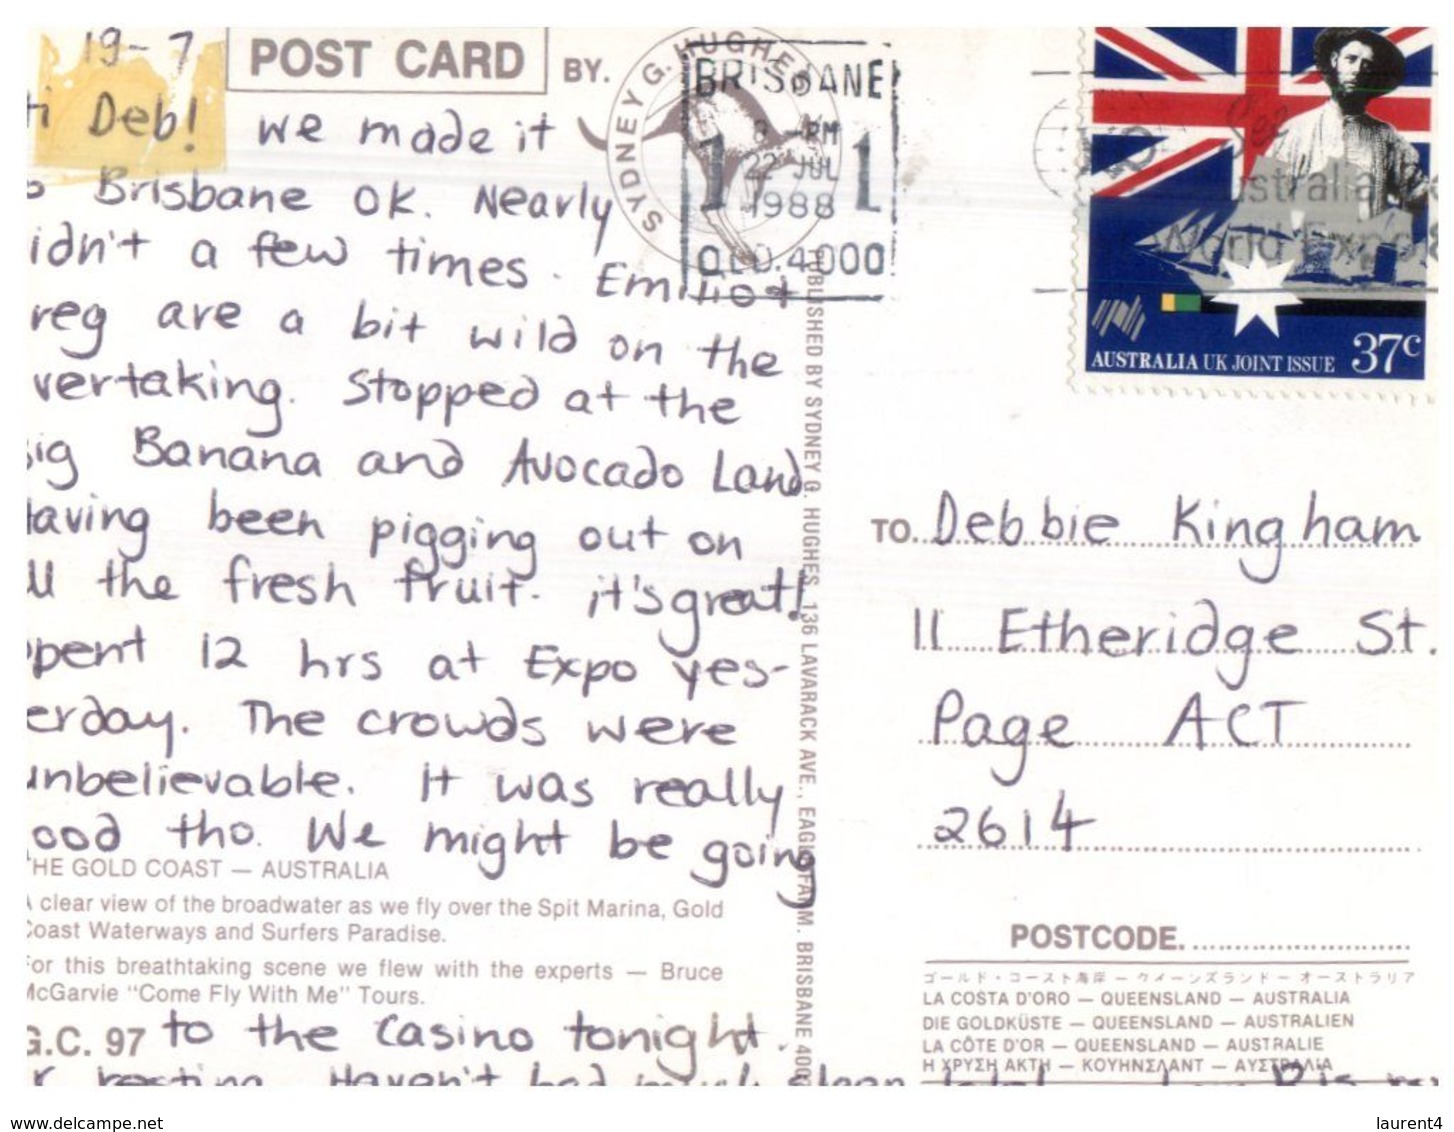 19-7
POST CARD BY.
SYDNEY G. HUGHES
BRISBANE
1 PM 1
22 JUL
1988
QLD. 4000
See
ustralia
World Expo
AUSTRALIA UK JOINT ISSUE 37c
i Deb! We made it
o Brisbane OK. Nearly
idn't a few times. Emilio +
reg are a bit wild on the
vertaking. Stopped at the
ig Banana and Avocado Land
aving been pigging out on
ll the fresh fruit. it's great!
pent 12 hrs at Expo yes-
erday. The crowds were
unbelievable. It was really
ood tho. We might be going
THE GOLD COAST — AUSTRALIA
A clear view of the broadwater as we fly over the Spit Marina, Gold
Coast Waterways and Surfers Paradise.
For this breathtaking scene we flew with the experts — Bruce
McGarvie "Come Fly With Me" Tours.
G.C. 97 to the Casino tonight.
r resting. Haven't had much sleep
PUBLISHED BY SYDNEY G. HUGHES, 136 LAVARACK AVE., EAGLE FARM. BRISBANE 400
TO. Debbie Kingham
11 Etheridge St.
Page ACT
2614
POSTCODE.
ゴールド・コースト海岸 — クイーンズランド — オーストラリア
LA COSTA D'ORO — QUEENSLAND — AUSTRALIA
DIE GOLDKÜSTE — QUEENSLAND — AUSTRALIEN
LA CÔTE D'OR — QUEENSLAND — AUSTRALIE
Η ΧΡΥΣΗ ΑΚΤΗ — ΚΟΥΗΝΣΛΑΝΤ — ΑΥΣΤΡΑΛΙΑ
www.delcampe.net
laurent4